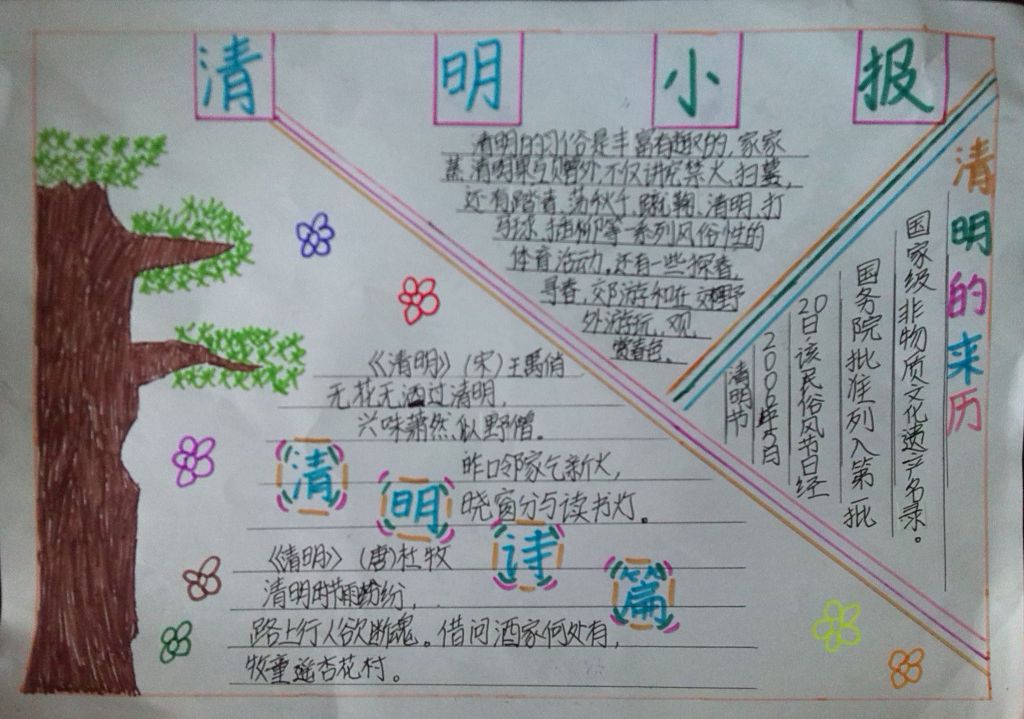 清明小报
清明的习俗是丰富有趣的，家家
蒸清明果互赠外，不仅讲究禁火、扫墓，
还有踏青、荡秋千、蹴鞠、清明、打
马球、插柳等一系列风俗性的
体育活动。还有一些探春，
寻春，郊游和在郊野
外游玩，观
赏春色。
清明的来历
清明节
2006年5月
20日，该民俗风节日经
国务院批准列入第一批
国家级非物质文化遗产名录。
《清明》（宋）王禹俏
无花无酒过清明，
兴味萧然似野僧。
昨日邻家乞新火，
晓窗分与读书灯。
清明诗篇
《清明》（唐）杜牧
清明时节雨纷纷，
路上行人欲断魂。借问酒家何处有，
牧童遥杏花村。